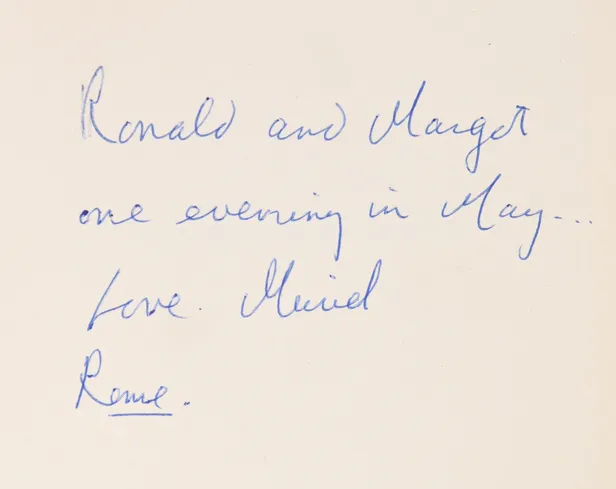 Ronald and Margot
one evening in May...
Love. Muriel
Rome.